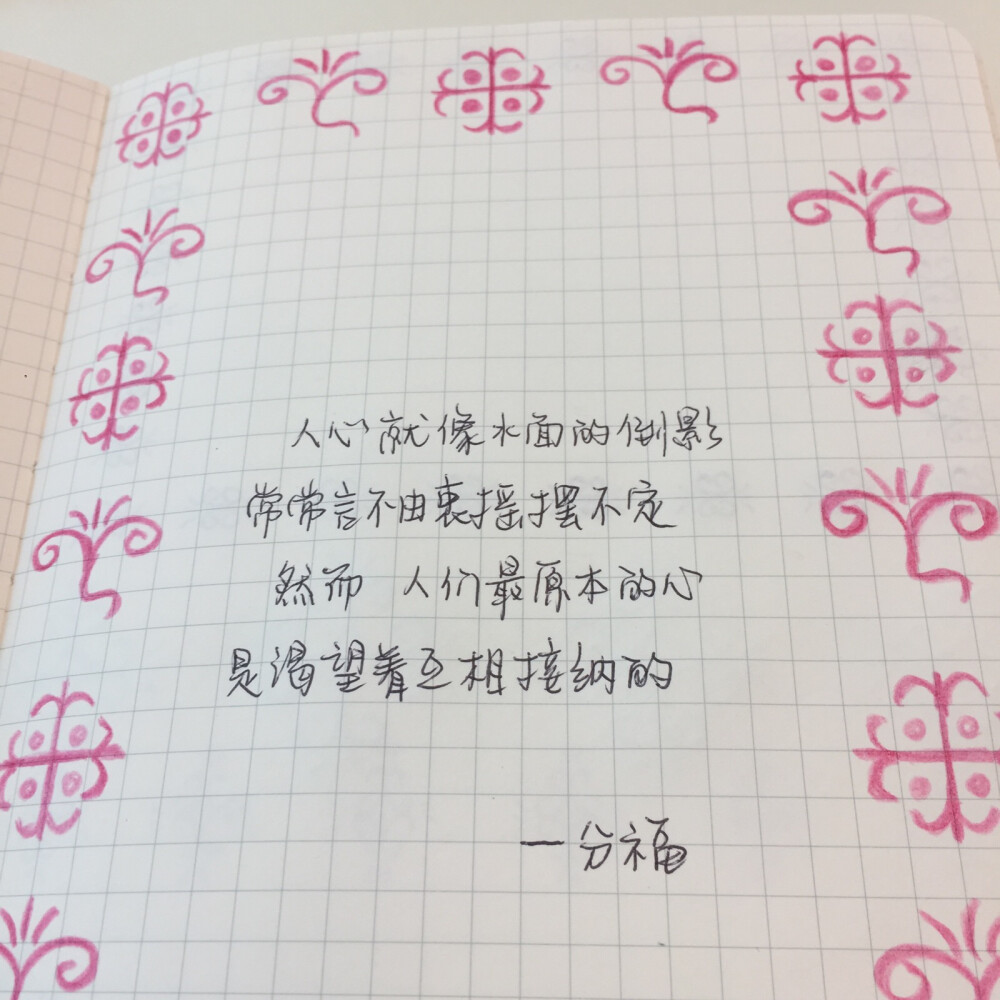 人心就像水面的倒影
常常言不由衷摇摆不定
然而 人们最原本的心
是渴望着互相接纳的
一分福